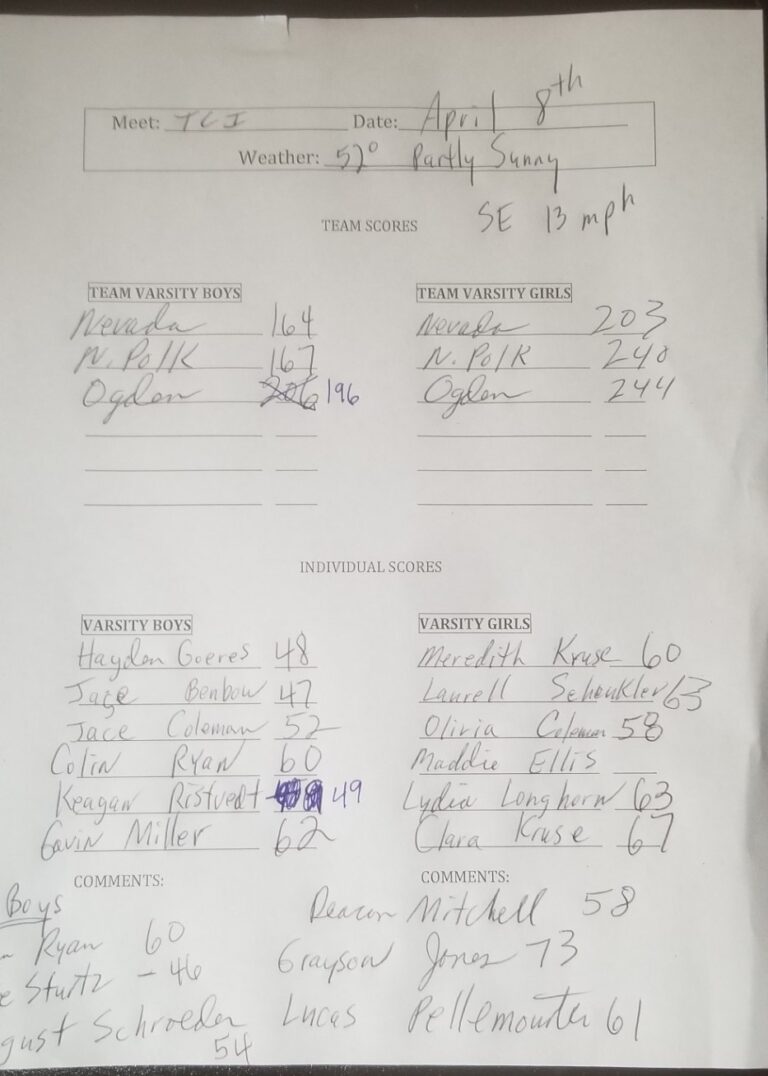 Meet: TCI Date: April 8th
Weather: 52° Partly Sunny
SE 13 mph
TEAM SCORES
TEAM VARSITY BOYS TEAM VARSITY GIRLS
Nevada 164 Nevada 203
N. Polk 167 N. Polk 240
Ogden 206 196 Ogden 244
INDIVIDUAL SCORES
VARSITY BOYS VARSITY GIRLS
Hayden Goeres 48 Meredith Kruse 60
Jace Benbow 47 Laurell 63
Jace Coleman 52 Olivia Coleman 58
Colin Ryan 60 Maddie Ellis
Keagan Ristvedt 49 Lydia Longhorn 63
Gavin Miller 62 Clara Kruse 67
COMMENTS: COMMENTS:
Boys Deacon Mitchell 58
Ryan 60 Grayson Jones 73
Sturtz - 46
gust Schroeder 54 Lucas Pellemounter 61